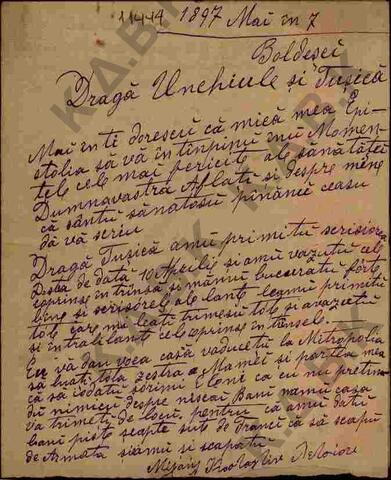 11444 1897 Mai in 7
Boldesci
Dragă Unchiule și Tușică
Mai în ti dorescu că mică mea Epi-
stolia să vă întinpinu înu Momen-
tele cele mai fericite ale sănătăței
Dumnavastră Aflată si despre mine
că sântu sănatosu pinănie ceasu
dă vă scriu
Dragă Tușică amu primitu scrisiorea
de dată 10 Aprilij si amu vazutu cele
coprinse în trinsa și mâniu bucuratu forte
bine și scrisorele alante legmu primitu
tote care mai leati trimesu tote si avazutu
si întralilante cele coprinse întrinsele.
Eu vă dau vocea casă vaduceti la Mitropolia
să luati tota zestra a Mamei si partea mea
ca să isdatu sorimi Eleni ca eu nu pretim
dă nimicu despre niscai Bani namu casa
vă trimetu de locu, pentru că amu dată
bani piste scapte sute de franci că să scapu
de Armata siamu si scapatu